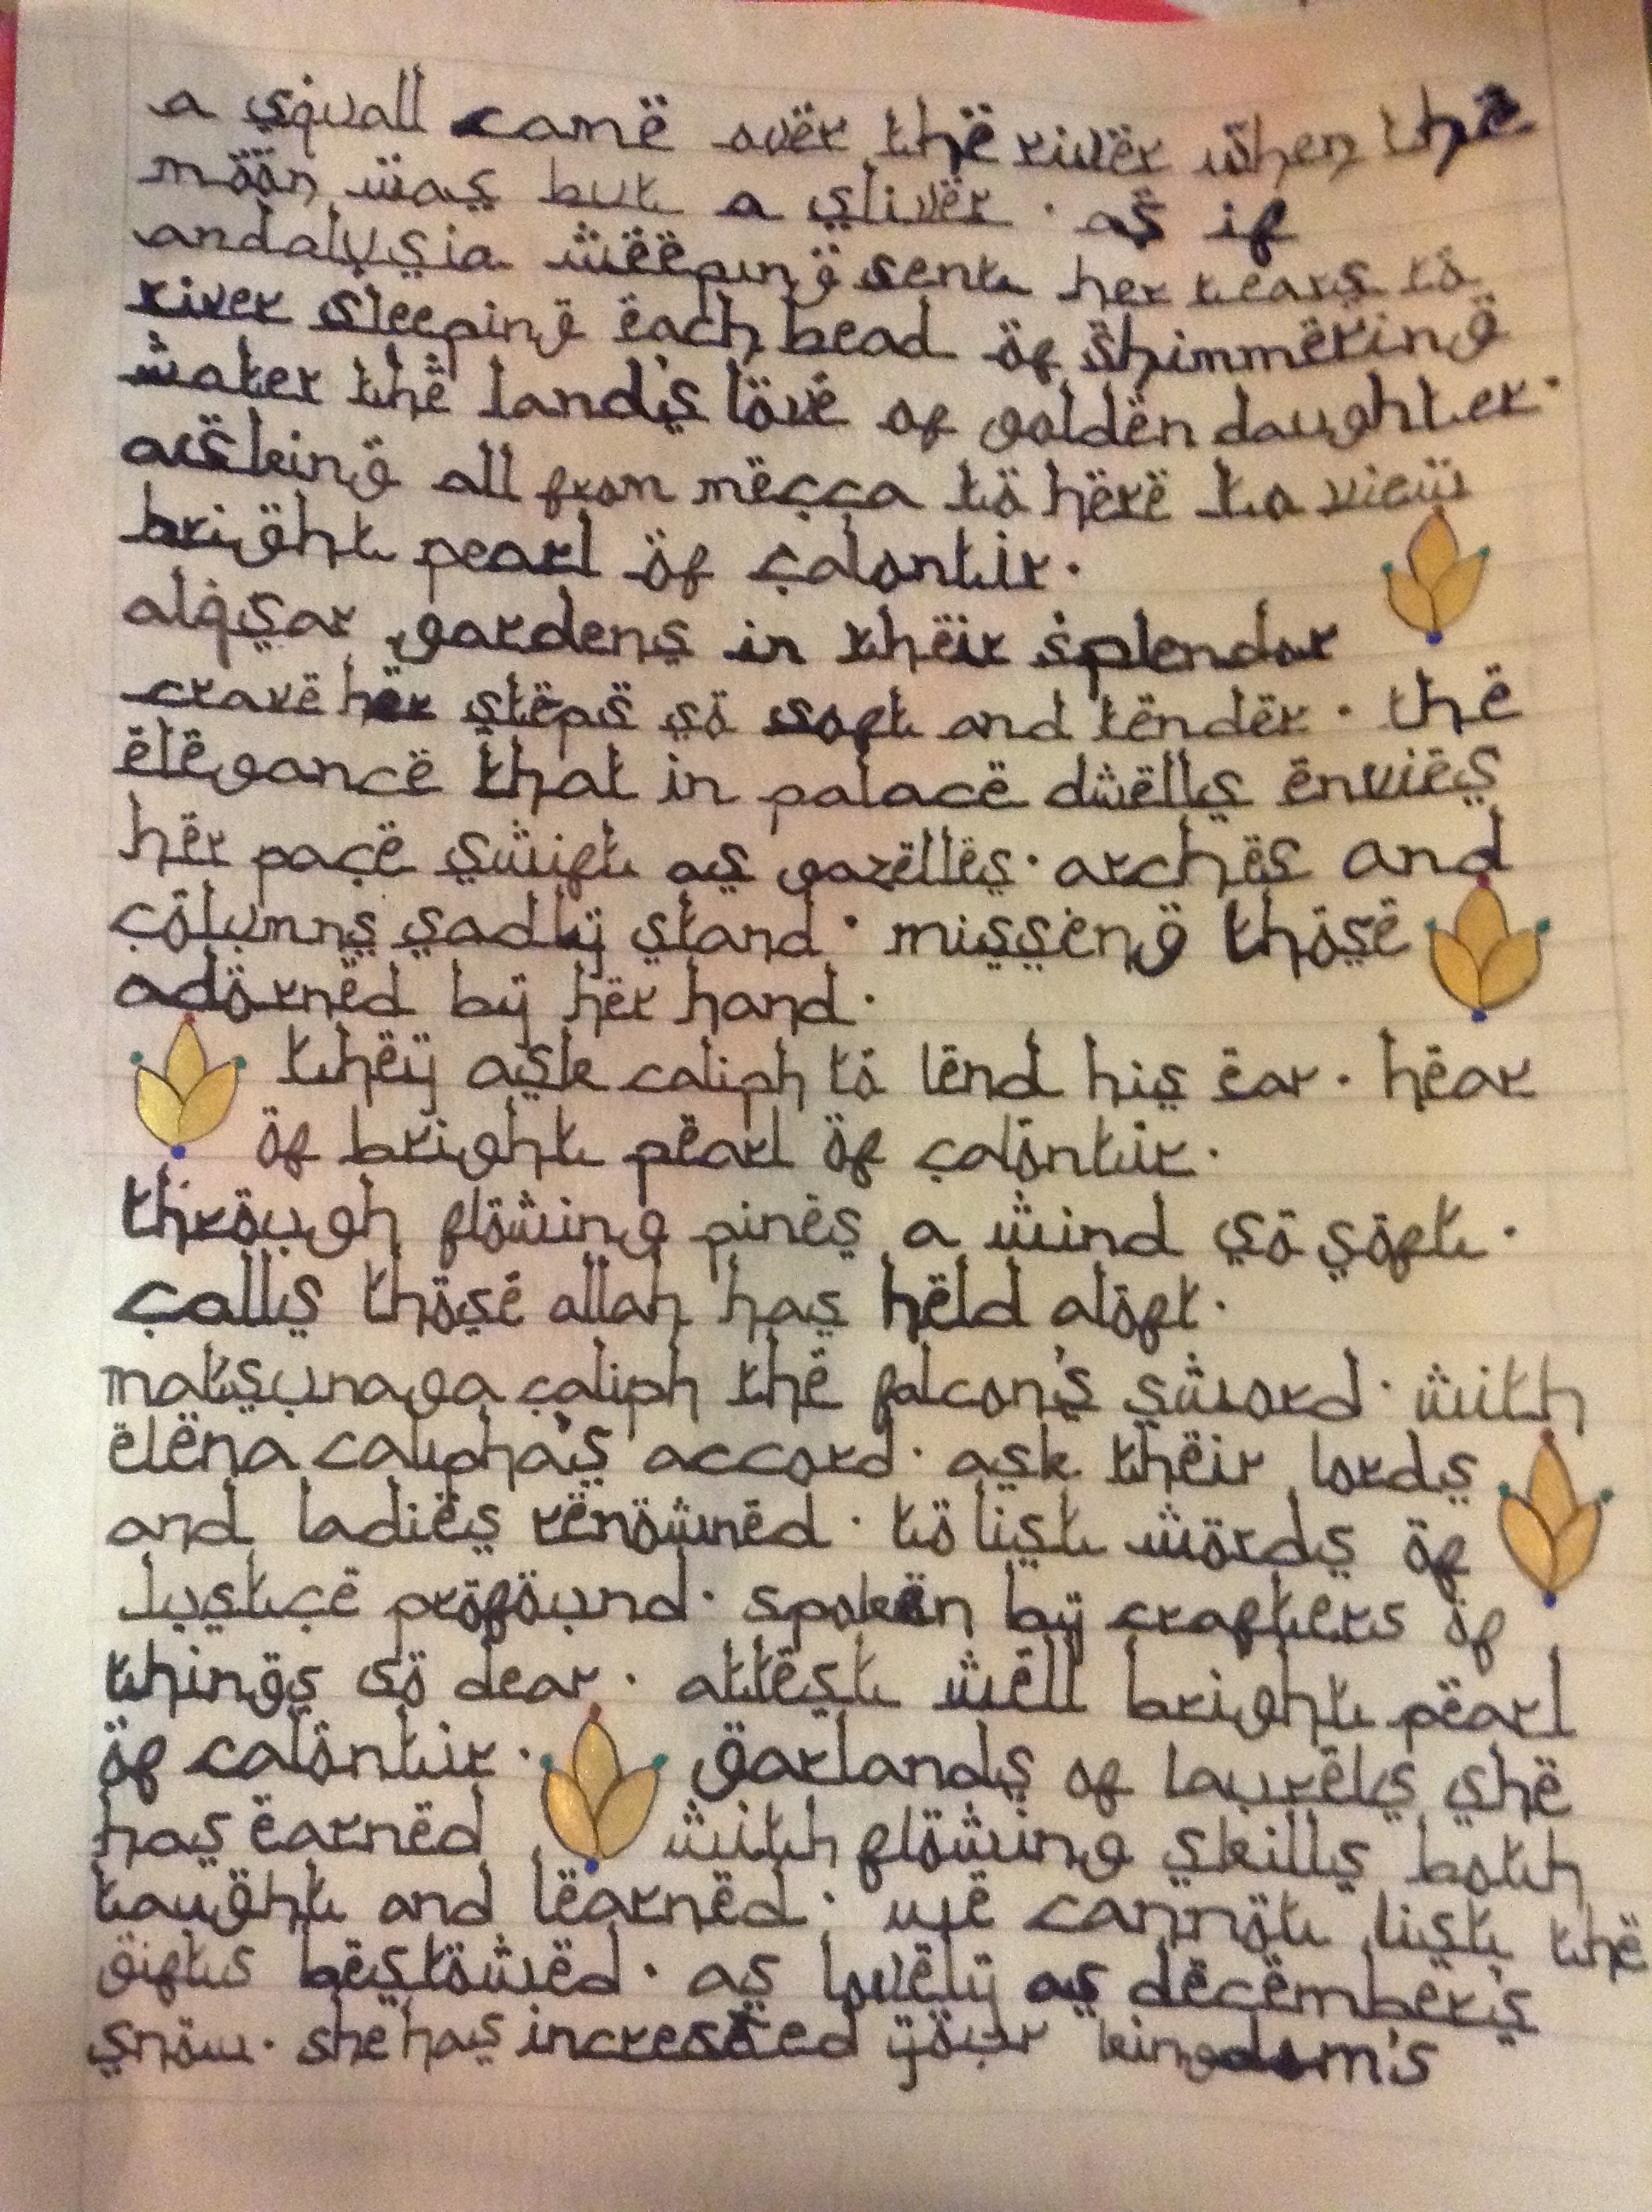 a squall came over the river when the
moon was but a sliver · as if
andalusia weeping sent her tears to
river sleeping each bead of shimmering
water the land's love of golden daughter ·
asking all from mecca to here to view
bright pearl of calontir ·
alqsar gardens in their splendor
crave her steps so soft and tender · the
elegance that in palace dwells envies
her pace swift as gazelles · arches and
columns sadly stand · misseng those
adorned by her hand ·
they ask caliph to lend his ear · hear
of bright pearl of calontir ·
through flowing pines a wind so soft ·
calls those allah has held aloft ·
matsunaga caliph the falcon's sword · with
elena calipha's accord · ask their lords
and ladies renowned · to list words of
justice profound · spoken by crafters of
things so dear · attest well bright pearl
of calontir · garlands of laurels she
has earned with flowing skills both
taught and learned · we cannot list the
gifts bestowed · as lovely as december's
snow · she has incresed your kingdom's